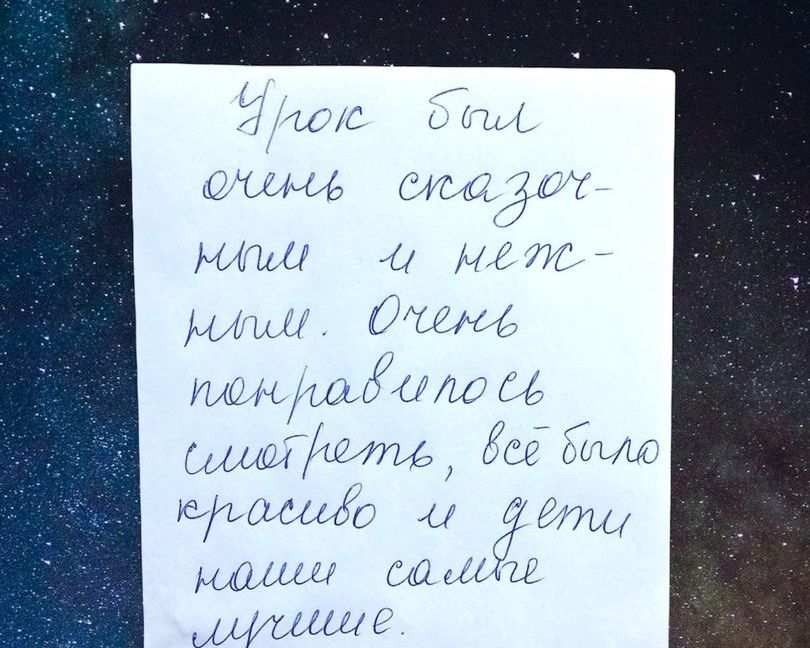 Урок был
очень сказоч-
ным и неж-
ным. Очень
понравилось
смотреть, всё было
красиво и дети
наши самые
лучшие.